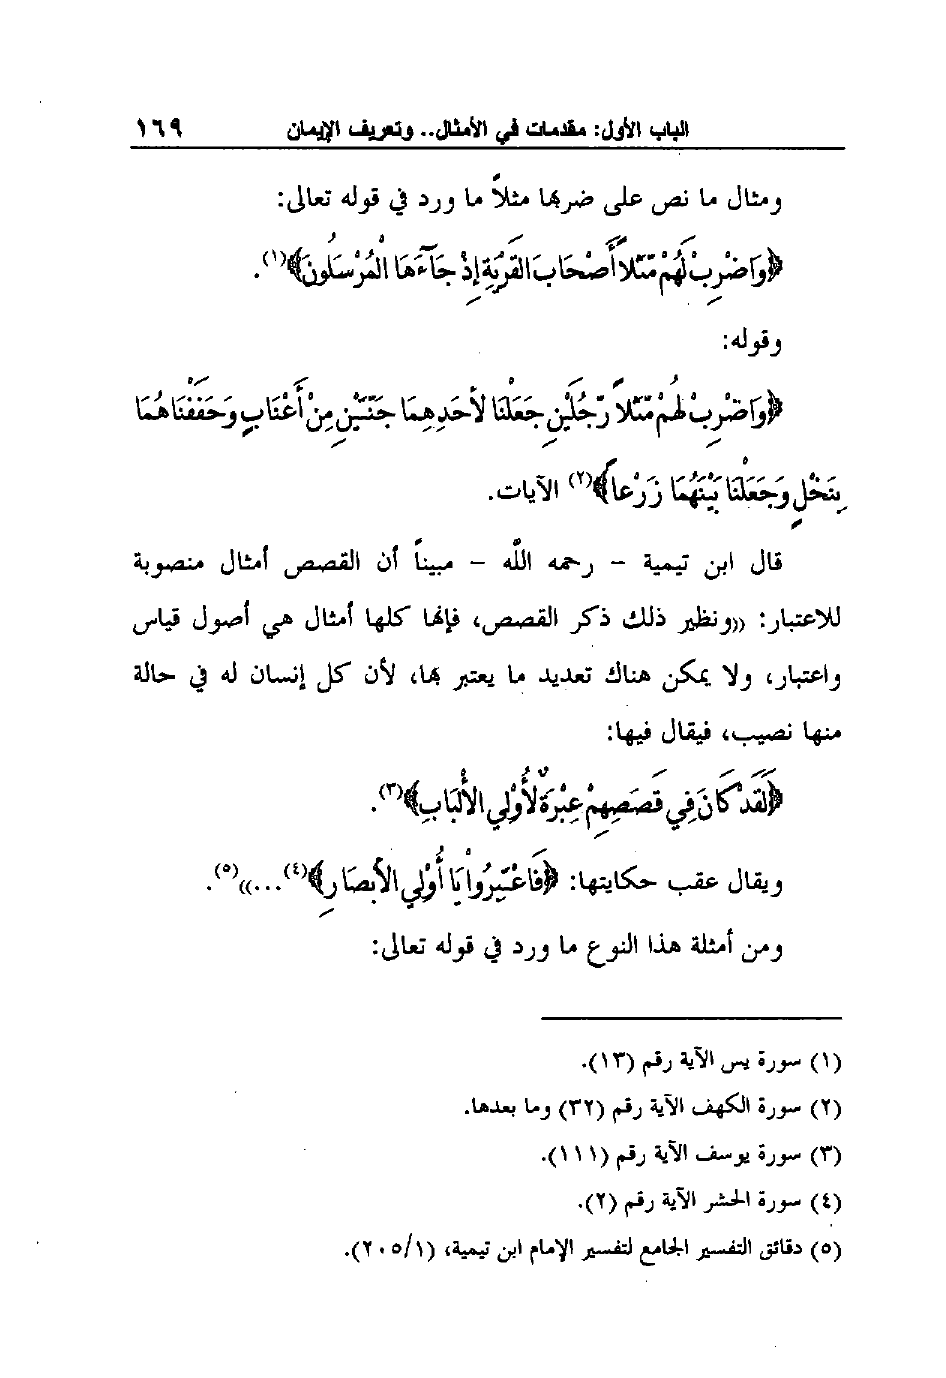 الباب الأول: مقدمات في الأمثال.. وتعريف الإيمان ١٦٩
ومثال ما نص على ضربها مثلاً ما ورد في قوله تعالى:
﴿وَاضْرِبْ لَهُمْ مَّثَلاً أَصْحَابَ القَرْيَةِ إِذْ جَآءَهَا الْمُرْسَلُونَ﴾(١).
وقوله:
﴿وَاضْرِبْ لَهُمْ مَّثَلاً رَّجُلَيْنِ جَعَلْنَا لأَحَدِهِمَا جَنَّتَيْنِ مِنْ أَعْنَابٍ وَحَفَفْنَاهُمَا
بِنَخْلٍ وَجَعَلْنَا بَيْنَهُمَا زَرْعاً﴾(٢) الآيات.
قال ابن تيمية - رحمه اللَّه - مبيناً أن القصص أمثال منصوبة
للاعتبار: ((ونظير ذلك ذكر القصص، فإنها كلها أمثال هي أصول قياس
واعتبار، ولا يمكن هناك تعديد ما يعتبر بها، لأن كل إنسان له في حالة
منها نصيب، فيقال فيها:
﴿لَقَدْ كَانَ فِي قَصَصِهِمْ عِبْرَةٌ لأُوْلِي الأَلْبَابِ﴾(٣).
ويقال عقب حكايتها: ﴿فَاعْتَبِرُوا يَا أُوْلِي الأَبْصَارِ﴾(٤)...))(٥).
ومن أمثلة هذا النوع ما ورد في قوله تعالى:
(١) سورة يس الآية رقم (١٣).
(٢) سورة الكهف الآية رقم (٣٢) وما بعدها.
(٣) سورة يوسف الآية رقم (١١١).
(٤) سورة الحشر الآية رقم (٢).
(٥) دقائق التفسير الجامع لتفسير الإمام ابن تيمية، (٢٠٥/١).